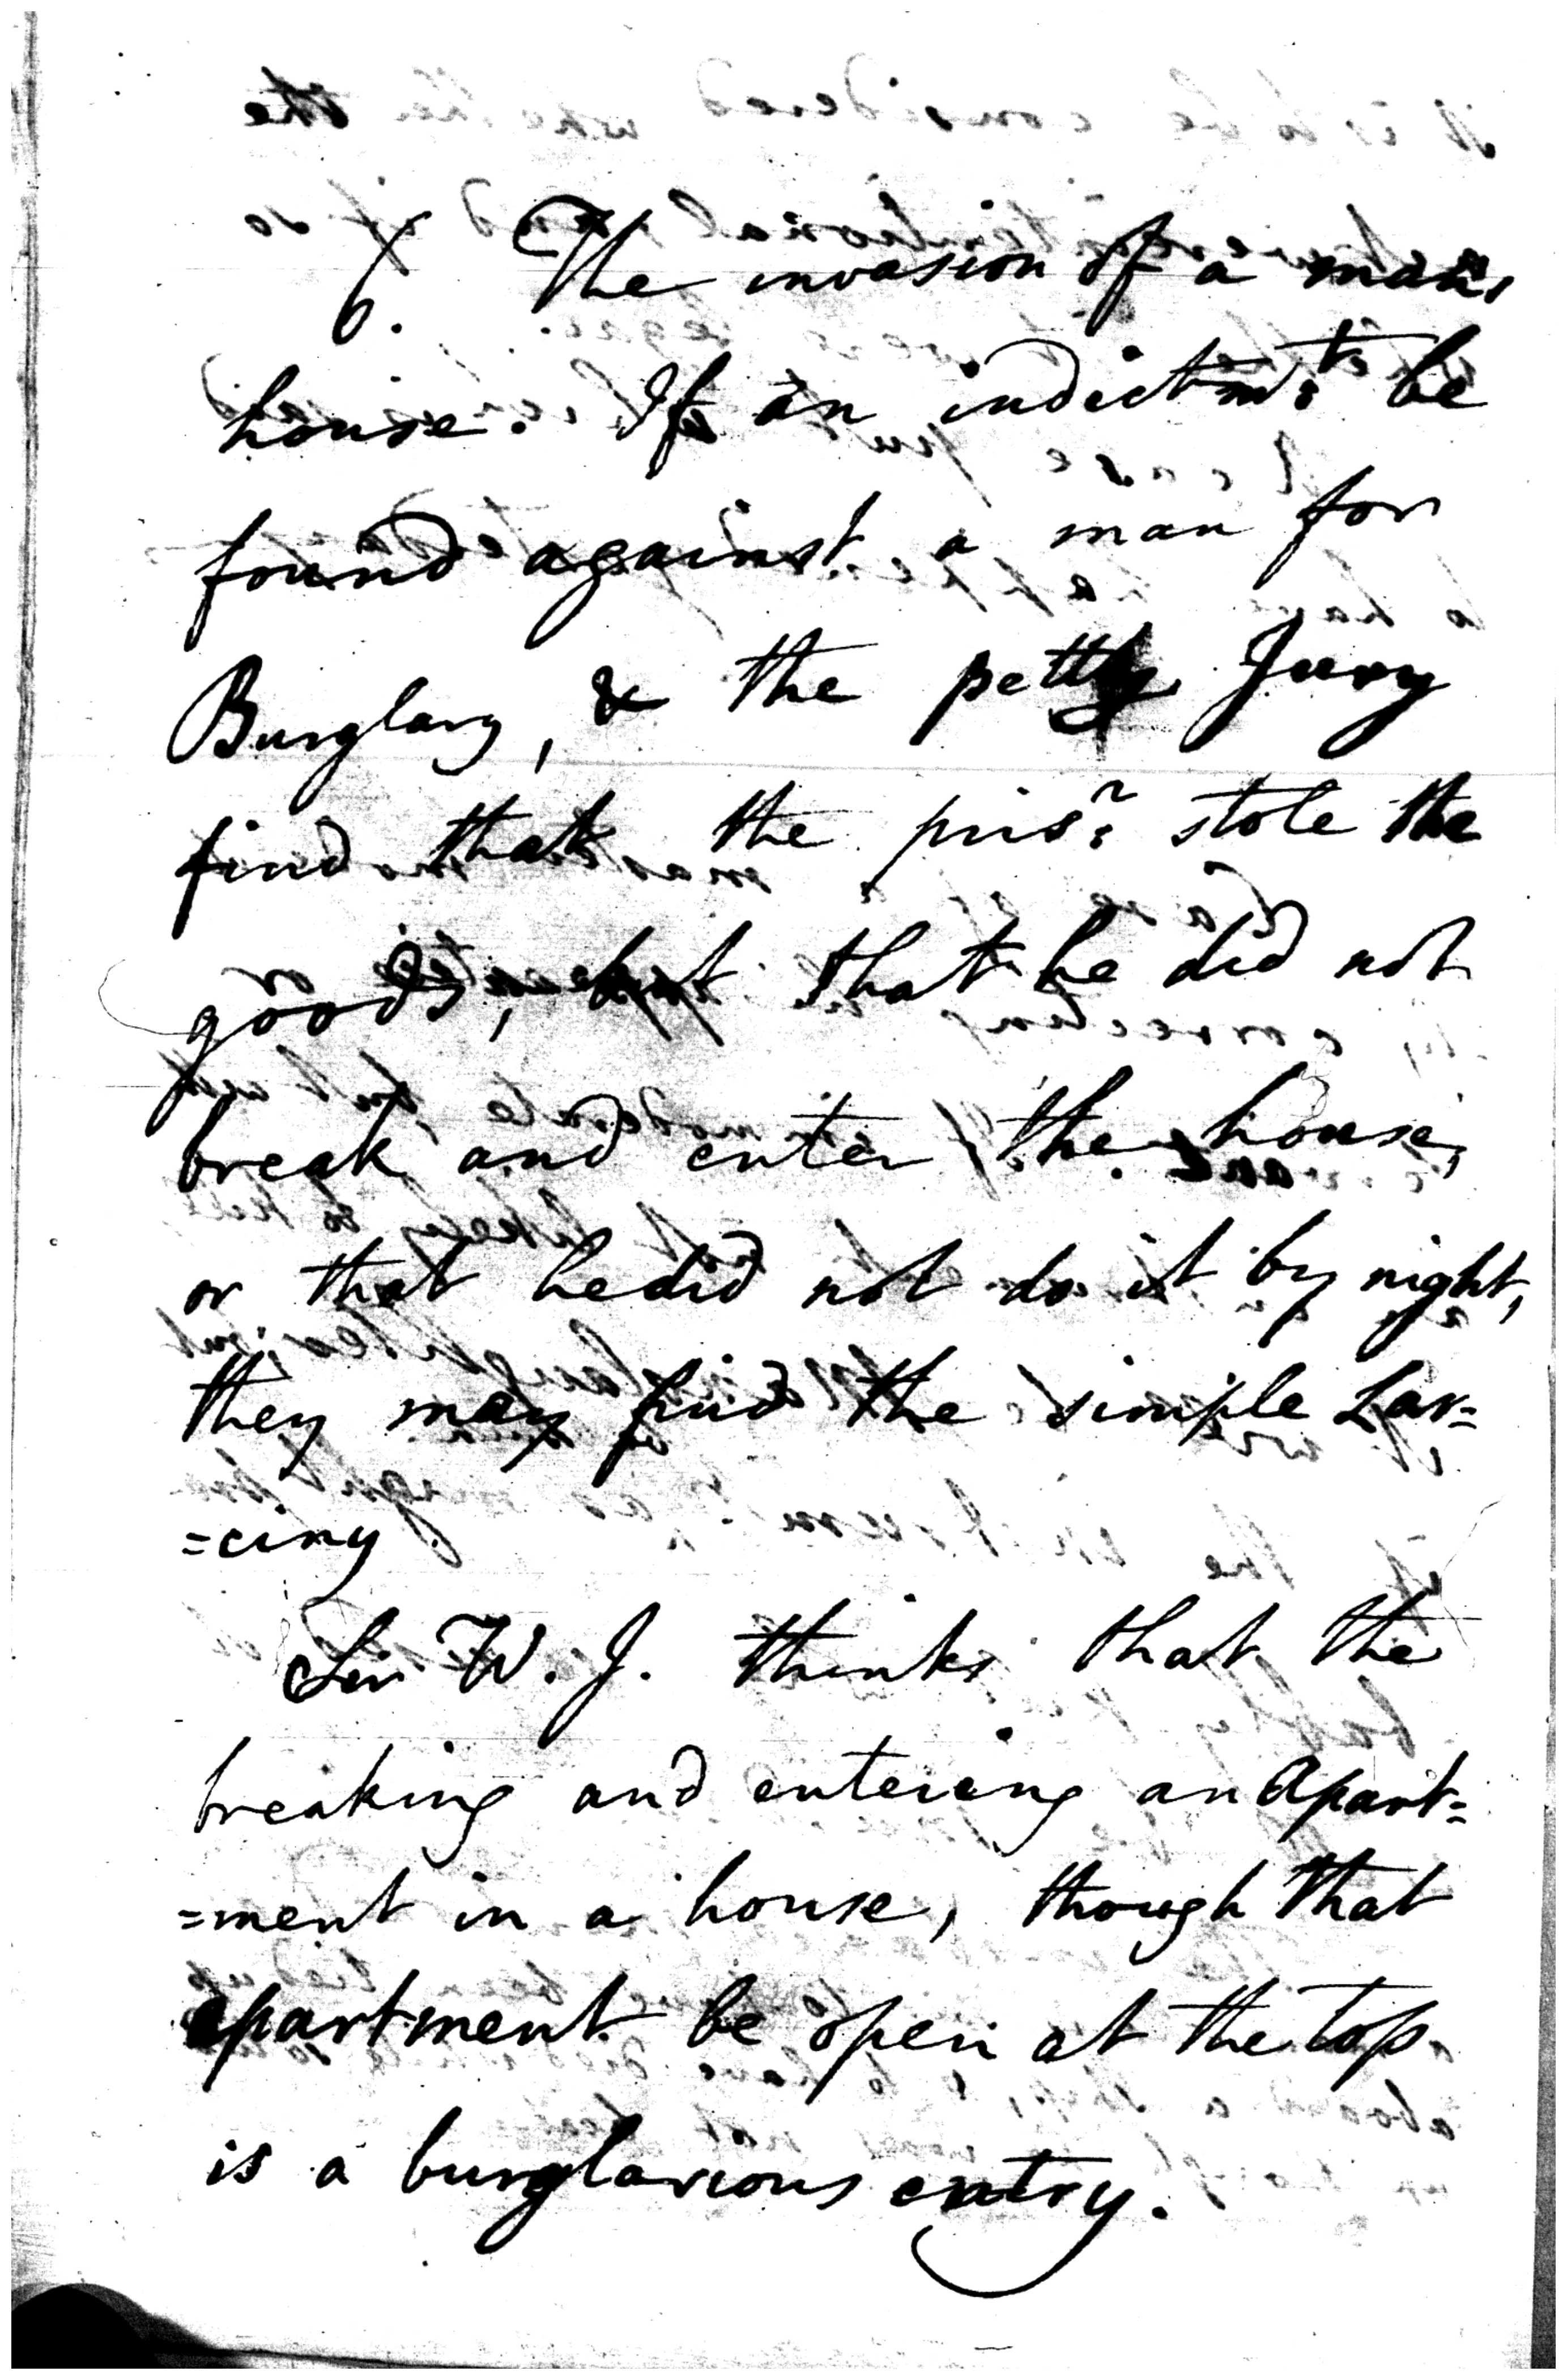 6. The invasion of a mans
house. If an indictmt. be
found against a man for
Burglary, & the petty Jury
find that the prisr. stole the
goods, but that he did not
break and enter the house,
or that he did not do it by night,
they may find the simple Lar=
=ciny
Sir W. J. thinks that the
breaking and entering an Apart=
=ment in a house, though that
apartment be open at the top
is a burglarious entry.